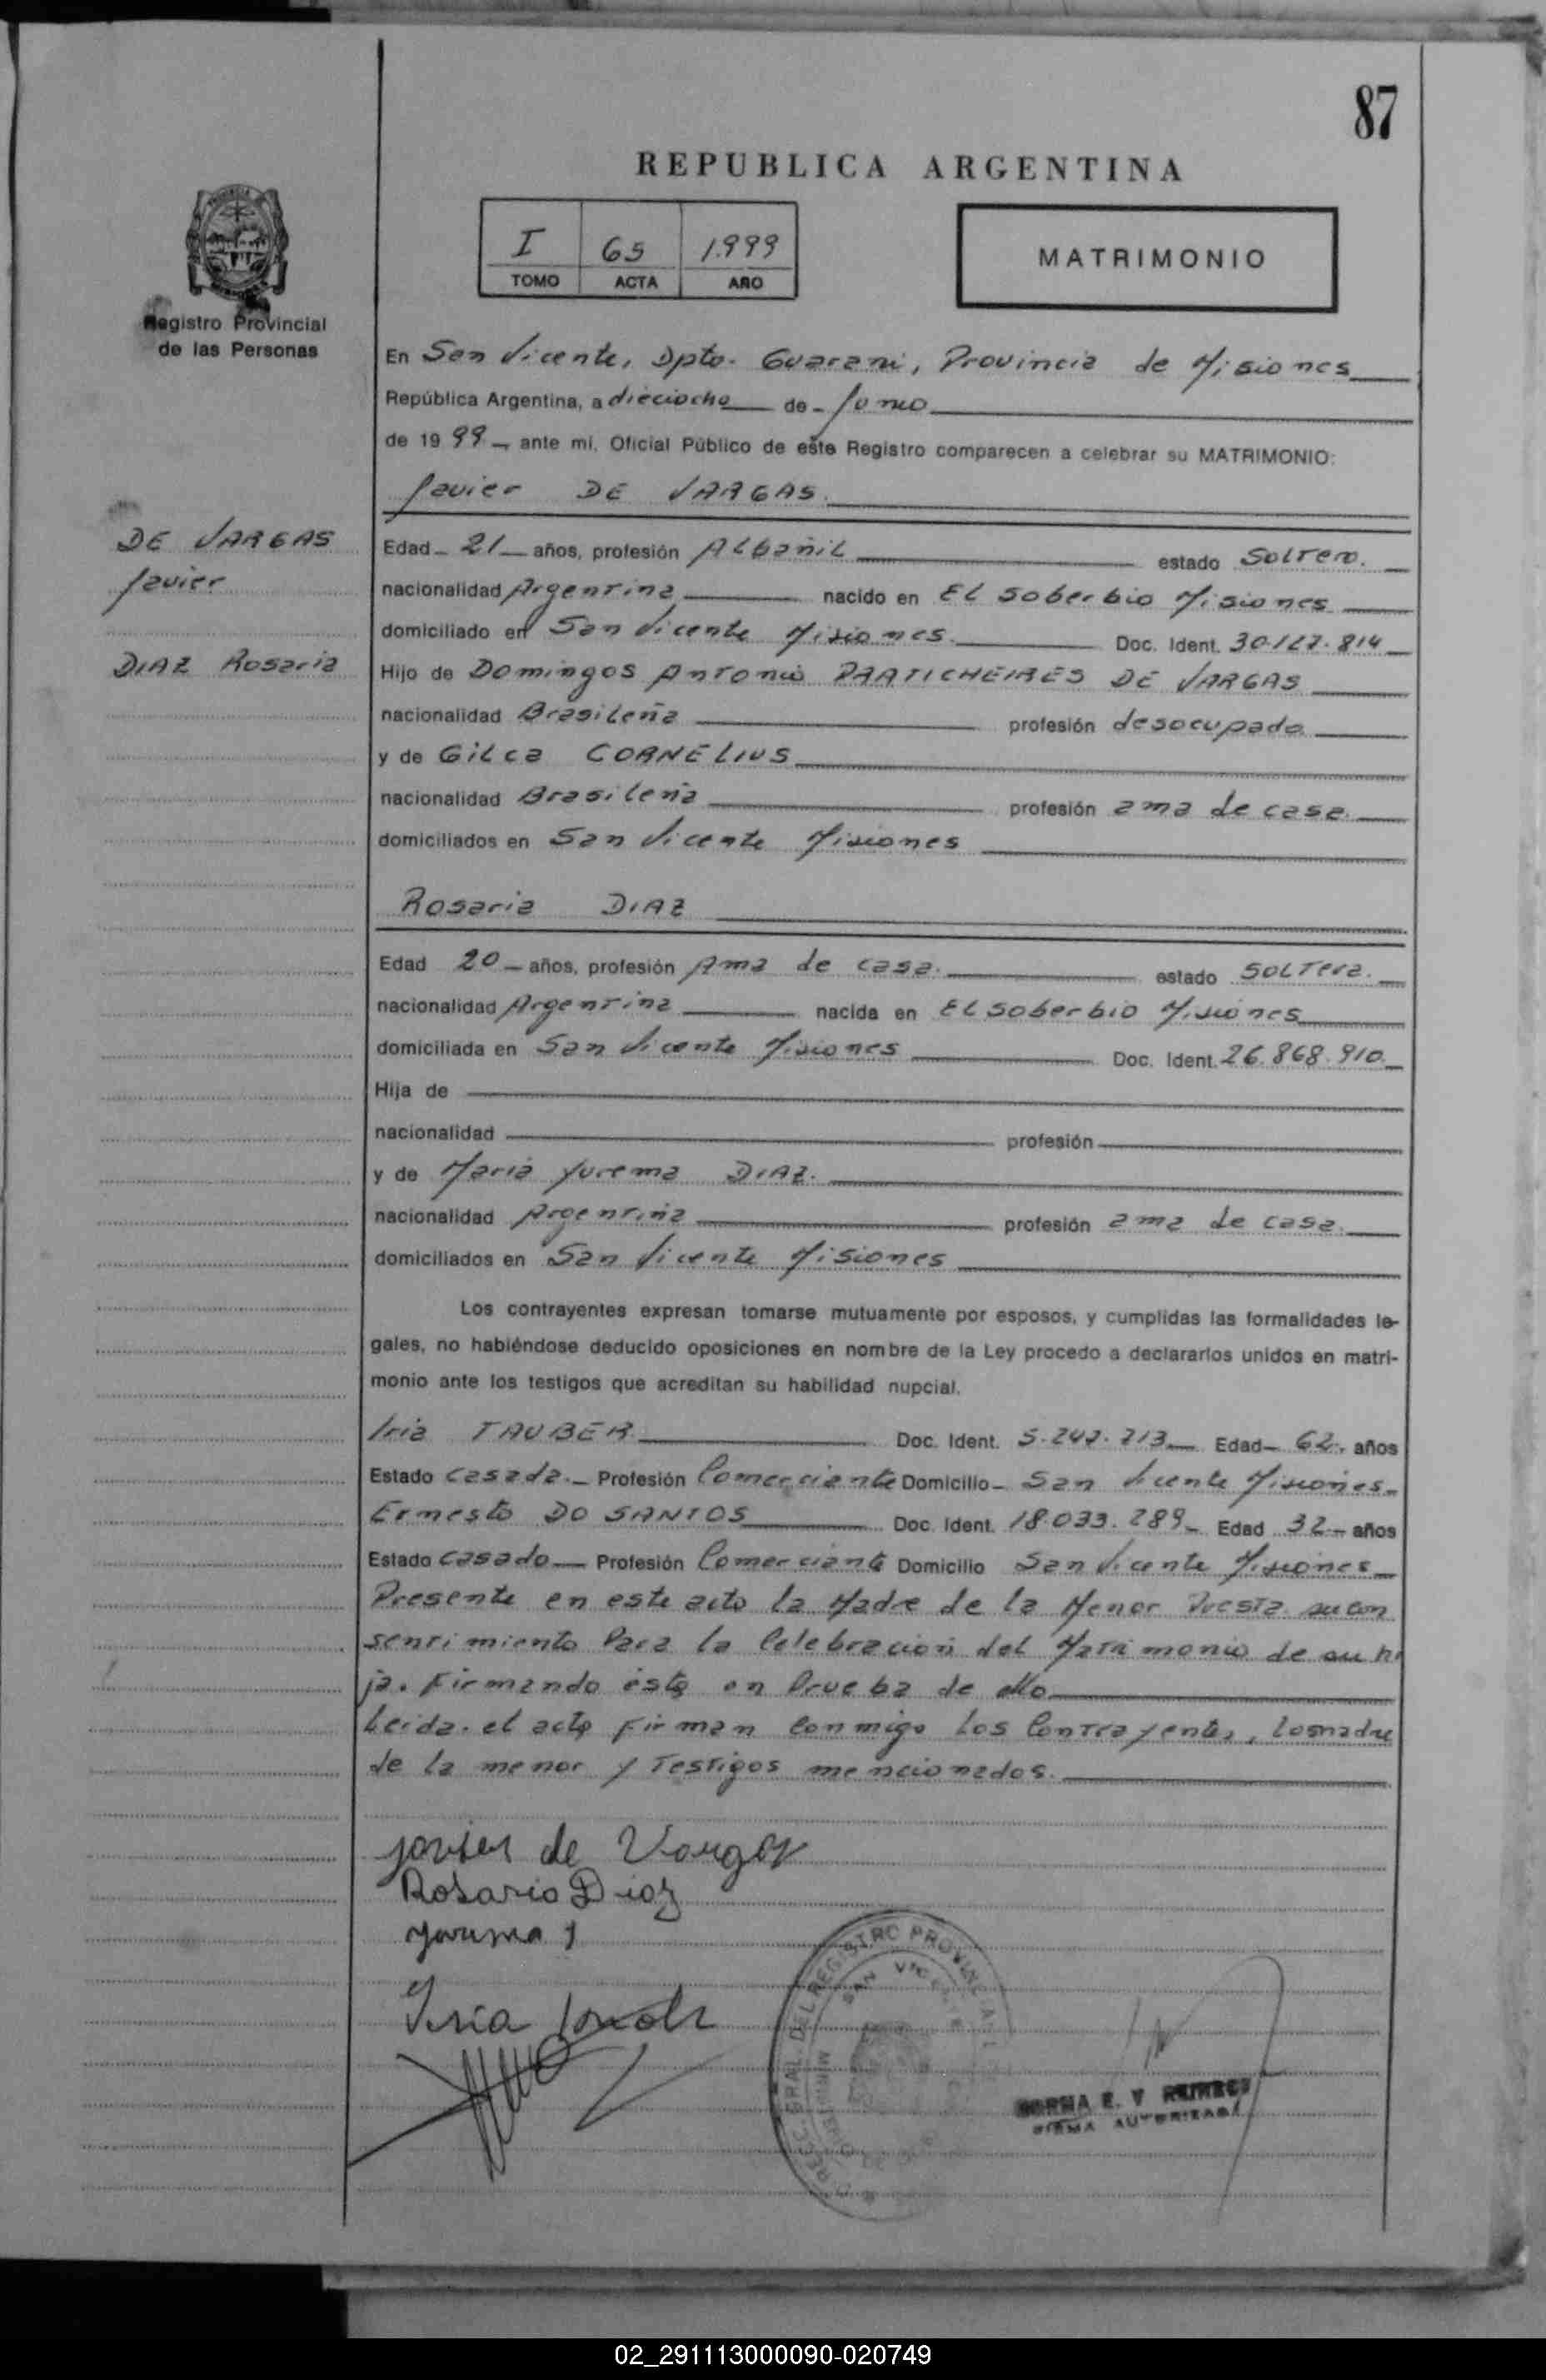 87
REPUBLICA ARGENTINA
I 65 1.999
TOMO ACTA AÑO
MATRIMONIO
Registro Provincial
de las Personas
En San Vicente, Dpto. Guarani, Provincia de Misiones
República Argentina, a dieciocho de Junio
de 19 99 ante mí, Oficial Público de este Registro comparecen a celebrar su MATRIMONIO:
Javier DE VARGAS.
DE VARGAS
Javier
DIAZ Rosaria
Edad 21 años, profesión Albañil estado Soltero.
nacionalidad Argentina nacido en El Soberbio Misiones
domiciliado en San Vicente Misiones. Doc. Ident. 30.127.814
Hijo de Domingos Antonio PRATICHEIRES DE VARGAS
nacionalidad Brasileña profesión desocupado
y de Gilca CORNELIUS
nacionalidad Brasileña profesión ama de casa.
domiciliados en San Vicente Misiones
Rosaria DIAZ
Edad 20 años, profesión Ama de casa. estado Soltera.
nacionalidad Argentina nacida en El Soberbio Misiones
domiciliada en San Vicente Misiones Doc. Ident. 26.868.910
Hija de
nacionalidad profesión
y de Maria Yurema DIAZ.
nacionalidad Argentina profesión ama de casa.
domiciliados en San Vicente Misiones
Los contrayentes expresan tomarse mutuamente por esposos, y cumplidas las formalidades le-
gales, no habiéndose deducido oposiciones en nombre de la Ley procedo a declararlos unidos en matri-
monio ante los testigos que acreditan su habilidad nupcial.
Iria TAUBER Doc. Ident. Edad 62. años
Estado Casada. Profesión Comerciante Domicilio San Vicente Misiones
Ernesto DO SANTOS Doc. Ident. 18.033.289 Edad 32 años
Estado Casado Profesión Comerciante Domicilio San Vicente Misiones
Presente en este acto la Madre de la Menor Presta su con
sentimiento Para la Celebracion del Matrimonio de su hi
ja. Firmando ésta en Prueba de ello
Leida. el acta Firman conmigo los Contrayentes, la madre
de la menor y Testigos mencionados.
Javier de Vargas
Rosario Diaz
Iria
DIREC. GRAL. DEL REGISTRO PROVINCIAL
SAN VICENTE
NORMA E. V
FIRMA AUTORIZADA
02_291113000090-020749